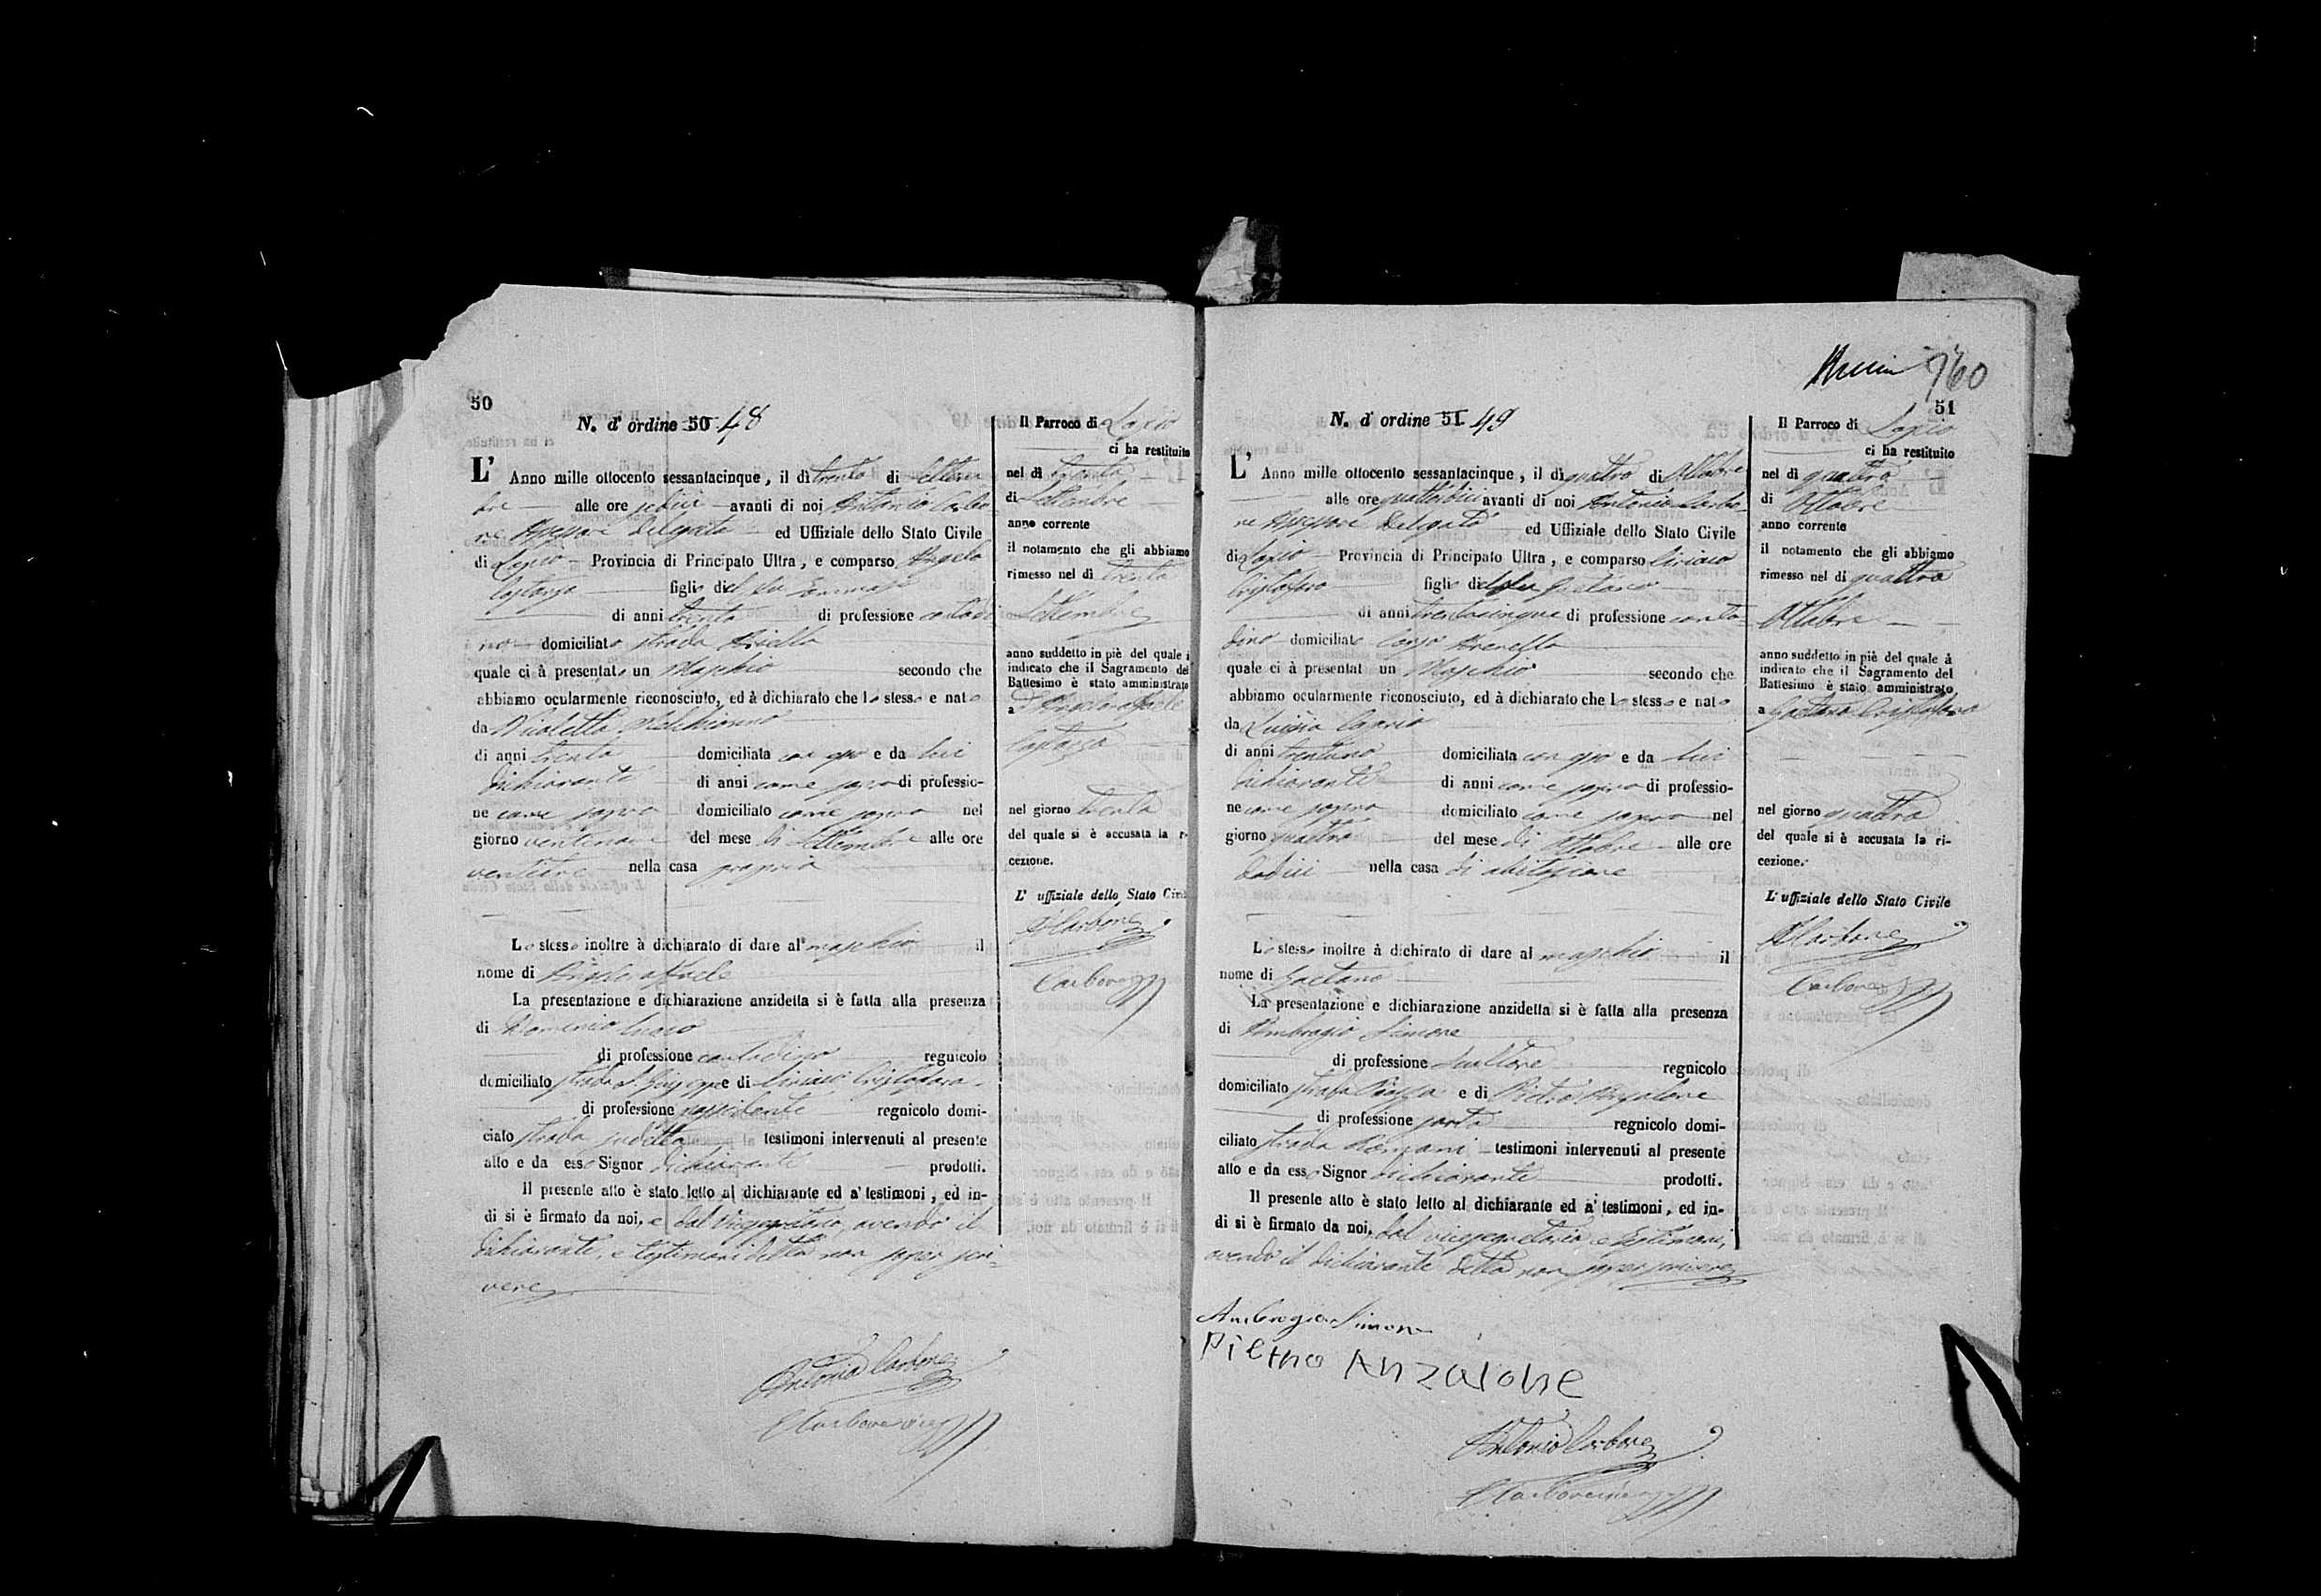 50
N. d' ordine 50 48
L' Anno mille ottocento sessantacinque, il dì trenta di Settem
bre alle ore sedici avanti di noi Antonio Carbo
ne Assessore Delegato ed Uffiziale dello Stato Civile
di Lapio Provincia di Principato Ultra, e comparso Angelo
figlio del fu Tommaso
di anni trenta di professione contadi
no domiciliato strada
quale ci à presentato un Maschio secondo che
abbiamo ocularmente riconosciuto, ed à dichiarato che lo stesso e nato
da Nicoletta
di anni trenta domiciliata con esso e da lui
dichiarante di anni come sopra di professio-
ne come sopra domiciliato come sopra nel
giorno ventinove del mese di Settembre alle ore
ventitre nella casa propria
Lo stesso inoltre à dichiarato di dare al maschio il
nome di
La presentazione e dichiarazione anzidetta si è fatta alla presenza
di Domenico
di professione contadino regnicolo
domiciliato strada S. Giuseppe e di Ciriaco Cristofaro
di professione regnicolo domi-
ciato strada sudetta testimoni intervenuti al presente
atto e da esso Signor dichiarante prodotti.
Il presente atto è stato letto al dichiarante ed a' testimoni, ed in-
di si è firmato da noi, e dal Vicesegretario, avendo il
dichiarante, e testimoni detto non saper scri-
vere
Antonio Carbone
Carbone
Il Parroco di Lapio
ci ha restituito
nel dì trenta
di Settembre
anno corrente
il notamento che gli abbiamo
rimesso nel dì trenta
Settembre
anno suddetto in piè del quale è
indicato che il Sagramento del
Battesimo è stato amministrato
a
nel giorno trenta
del quale si è accusata la ri-
cezione.
L' uffiziale dello Stato Civile
A Carbone
Carbone
760
51
N. d' ordine 51 49
L' Anno mille ottocento sessantacinque, il dì quattro di Ottobre
alle ore quattordici avanti di noi Antonio Carbo
ne Assessore Delegato ed Uffiziale dello Stato Civile
di Lapio Provincia di Principato Ultra, e comparso Ciriaco
Cristofaro figlio del fu Gaetano
di anni trentacinque di professione conta-
dino domiciliato
quale ci à presentat un Maschio secondo che
abbiamo ocularmente riconosciuto, ed à dichiarato che lo stesso e nato
da Luisia Caprio
di anni trentuno domiciliata con esso e da lui
dichiarante di anni come sopra di professio-
ne come sopra domiciliato come sopra nel
giorno quattro del mese di Ottobre alle ore
dodici nella casa di abitazione
Lo stesso inoltre à dichirato di dare al maschio il
nome di Gaetano
La presentazione e dichiarazione anzidetta si è fatta alla presenza
di Ambrogio Simone
di professione regnicolo
domiciliato strada Piazza e di Pietro Anzalone
di professione sarto regnicolo domi-
ciliato strada testimoni intervenuti al presente
atto e da esso Signor dichiarante prodotti.
Il presente atto è stato letto al dichiarante ed a' testimoni, ed in-
di si è firmato da noi, dal vicesegretario e testimoni,
avendo il dichiarante detto non saper scrivere
Ambrogio Simone
Pietro Anzalone
Antonio Carbone
Carbone
Il Parroco di Lapio
ci ha restituito
nel dì quattro
di Ottobre
anno corrente
il notamento che gli abbiamo
rimesso nel dì quattro
Ottobre
anno suddetto in piè del quale à
indicato che il Sagramento del
Battesimo è stato amministrato
a Gaetano Cristofaro
nel giorno quattro
del quale si è accusata la ri-
cezione.
L' uffiziale dello Stato Civile
A Carbone
Carbone